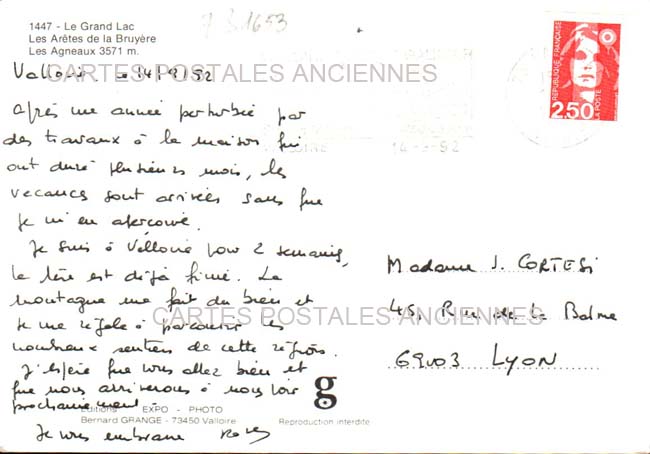 1447 - Le Grand Lac
Les Arêtes de la Bruyère
Les Agneaux 3571 m.
CARTES POSTALES ANCIENNES
après une année perturbée par
des travaux à la maison qui
ont duré plusieurs mois, les
vacances sont arrivées sans que
je m'en aperçoive.
Je suis à Valloire pour 2 semaines,
la 1ère est déjà finie. La
montagne me fait du bien et
je me régale à parcourir les
nombreux sentiers de cette région.
J'espère que vous allez bien et
que nous arriverons à nous voir
prochainement.
Je vous embrasse
Editions EXPO - PHOTO
Bernard GRANGE - 73450 Valloire
Reproduction interdite
g
CARTES POSTALES ANCIENNES
REPUBLIQUE FRANÇAISE
2,50
LA POSTE
14-9-92
Madame J. CORTESI
45, Rue de la Balme
69003 LYON